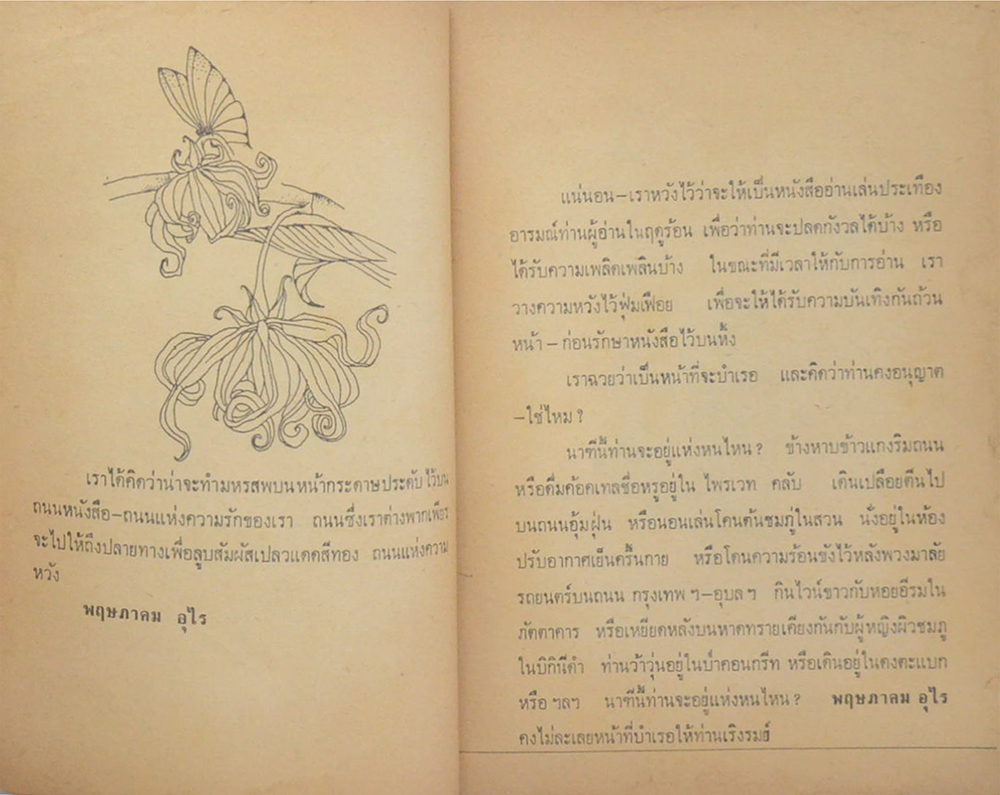 เราได้คิดว่าน่าจะทำมหรสพบนหน้ากระดาษประดับไว้บน
ถนนหนังสือ–ถนนแห่งความรักของเรา ถนนซึ่งเราต่างพากเพียร
จะไปให้ถึงปลายทางเพื่อสูบสัมผัสเปลวแดดสีทอง ถนนแห่งความ
หวัง
พฤษภาคม อุไร
แน่นอน–เราหวังไว้ว่าจะให้เป็นหนังสืออ่านเล่นประเทือง
อารมณ์ท่านผู้อ่านในฤดูร้อน เพื่อว่าท่านจะปลดกังวลได้บ้าง หรือ
ได้รับความเพลิดเพลินบ้าง ในขณะที่มีเวลาให้กับการอ่าน เรา
วางความหวังไว้ฟุ่มเฟือย เพื่อจะให้ได้รับความบันเทิงกันถ้วน
หน้า – ก่อนรักษาหนังสือไว้บนหิ้ง
เราฉวยว่าเป็นหน้าที่จะบำเรอ และคิดว่าท่านคงอนุญาต
–ใช่ไหม ?
นาฑีนี้ท่านจะอยู่แห่งหนไหน ? ข้างหาบข้าวแกงริมถนน
หรือดื่มค้อคเทลชื่อหรูอยู่ใน ไพรเวท คลับ เดินเปลือยตีนไป
บนถนนอุ้มฝุ่น หรือนอนเล่นโคนต้นชมภู่ในสวน นั่งอยู่ในห้อง
ปรับอากาศเย็นครื้นกาย หรือโดนความร้อนขังไว้หลังพวงมาลัย
รถยนตร์บนถนน กรุงเทพ ฯ–อุบล ฯ กินไวน์ขาวกับหอยอีรมใน
ภัตตาคาร หรือเหยียดหลังบนหาดทรายเคียงกันกับผู้หญิงผิวชมภู
ในบิกินีดำ ท่านว้าวุ่นอยู่ในป่าคอนกรีท หรือเดินอยู่ในดงตะแบก
หรือ ฯลฯ นาฑีนี้ท่านจะอยู่แห่งหนไหน ? พฤษภาคม อุไร
คงไม่ละเลยหน้าที่บำเรอให้ท่านเริงรมย์